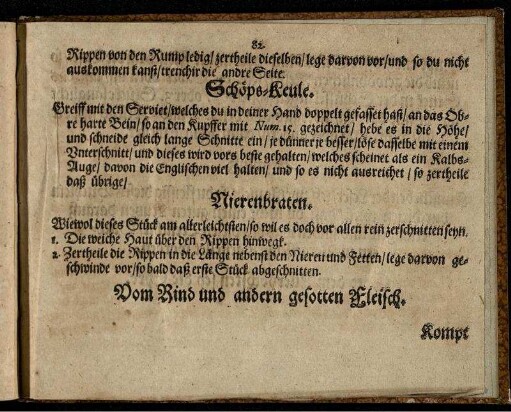 82.
Rippen von den Rump ledig/ zertheile dieselben/ lege darvon vor/ und so du nicht
auskommen kanst/ trenchir die andre Seite.
Schöps-Keule.
Greiff mit den Serviet/ welches du in deiner Hand doppelt gefasset hast/ an das Ob-
re harte Bein/ so an den Kupffer mit Num. 15. gezeichnet/ hebe es in die Höhe/
und schneide gleich lange Schnitte ein/ je dünner je besser/ löse dasselbe mit einem
Unterschnitt/ und dieses wird vors beste gehalten/ welches scheinet als ein Kalbs-
Auge/ davon die Englischen viel halten/ und so es nicht ausreichet/ so zertheile
daß übrige/
Nierenbraten.
Wiewol dieses Stück am allerleichtsten/ so wil es doch vor allen rein zerschnitten seyn.
1. Die weiche Haut über den Rippen hinwegk.
2. Zertheile die Rippen in die Länge nebenst den Nieren und Fetten/ lege darvon ge-
schwinde vor/ so bald daß erste Stück abgeschnitten.
Vom Rind und andern gesotten Fleisch.
Kompt